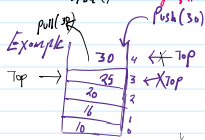 pull(30)
Push(30)
Example
30 4 ← Top
Top → 25 3 ← Top
20 2
16 1
10 0